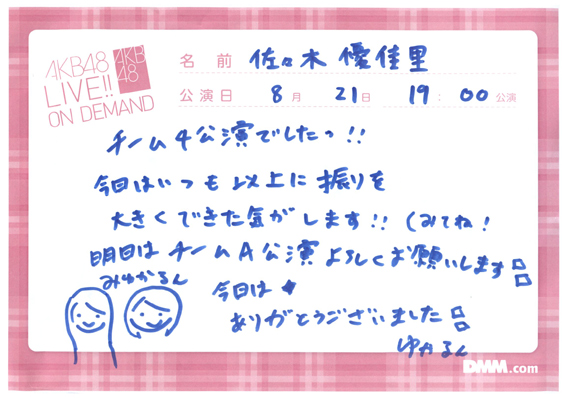 AKB48
LIVE!!
ON DEMAND
AKB
48
名前 佐々木優佳里
公演日 8月 21日 19:00公演
チーム4公演でしたっ!!
今日はいつも以上に振りを
大きくできた気がします!! (みてね!
明日はチームA公演よろしくお願いします
みゆかるん
今日は
ありがとうございました
ゆかるん
DMM.com